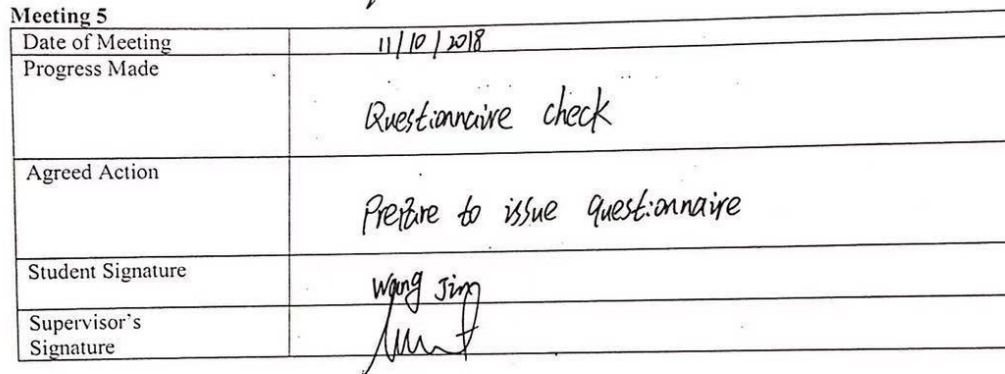 Meeting 5
Date of Meeting 11/10/2018
Progress Made
Questionnaire check
Agreed Action
Prepare to issue questionnaire
Student Signature Wang Jing
Supervisor's
Signature